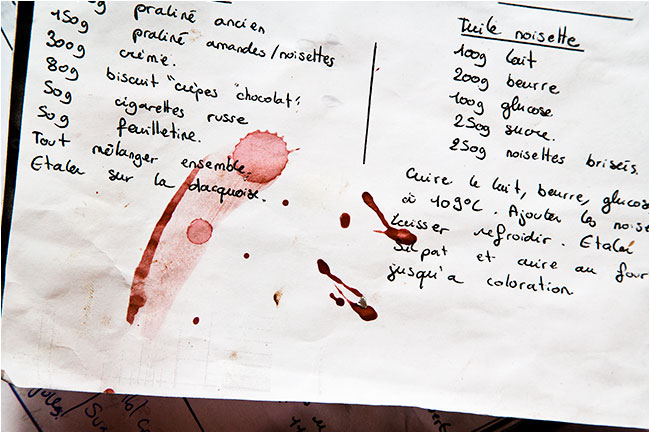 g praliné ancien
150g praliné amandes/noisettes
300g crème.
80g biscuit "crêpes "chocolat".
50g cigarettes russe
50g feuilletine.
Tout mélanger ensemble.
Etaler sur la dacquoise.
Tuile noisette
100g lait
200g beurre
100g glucose
250g sucre.
250g noisettes brisées.
Cuire le lait, beurre, glucose
à 109°C. Ajouter les noise
Laisser refroidir. Etaler
Silpat et cuire au four
jusqu'a coloration